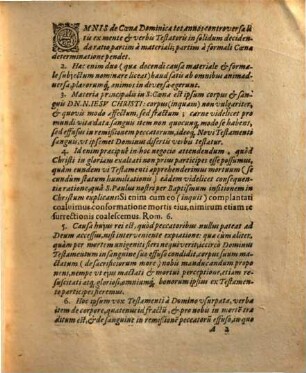 OMNIS de Cœna Dominica tot annos controversa li
tis ex mente & verbis Testatoris in solidum deciden
da ratio partim à materiali, partim à formali Cœnæ
determinatione pendet.
2. Hæc enim duæ (quæ docendi causa materiale & forma-
le subiectum nominare liceat) haud satis ab omnibus animad-
versa plærorumq; animos in diversa egerunt.
3. Materia principalis in S. Cœna est ipsum corpus & sangvis
D. N. N. IESV CHRISTI: corpus (inquam) non vulgariter,
& quovis modo affectum, sed fractum, & caro videlicet pro
mundi vita data: sangvis item non quocunq; modo se habens,
sed effusus in remissionem peccatorum, ideoq; Novi Testamenti
sangvis, ut ipsemet Dominus disertis verbis testatur.
4. Id enim præcipuè in hoc negocio attendendum, quòd
Christi in gloriam exaltati non prius participes esse possumus,
quàm eundem vi Testamenti apprehenderimus mortuum (se-
cundum statum humilitationis) eadem videlicet consequen-
tiæ ratione, quâ S. Paulus nostri per Baptismum insitionem in
Christum explicans: Si enim cum eo (inquit) complantati
coaluimus conformatione mortis eius, nimirum etiam re-
surrectionis coalescemus. Rom. 6.
5. Causa huius rei est, quòd peccatoribus nullus pateat ad
Deum accessus, nisi interveniente expiatione: quæ cum aliter,
quàm per mortem unigeniti fieri nequiverit; certè Dominus
Testamentum in sangvine suo effuso condidit, corpus suum
mactatum (de sacrificiorum more) nobis manducandum propo-
nens, nempe vt eius mactati & mortui perceptione, etiam re-
suscitati atq; gloriosi, omniumq; bonorum ipsius ex Testamen-
to participes fieremus.
6. Hoc ipsum vox Testamenti à Domino vsurpata, verba
item de corpore, quatenus id fractũ, & pro nobis in mortẽ tra
ditum est, & de sangvine in remissionẽ peccatorũ effuso, in quo
A 2